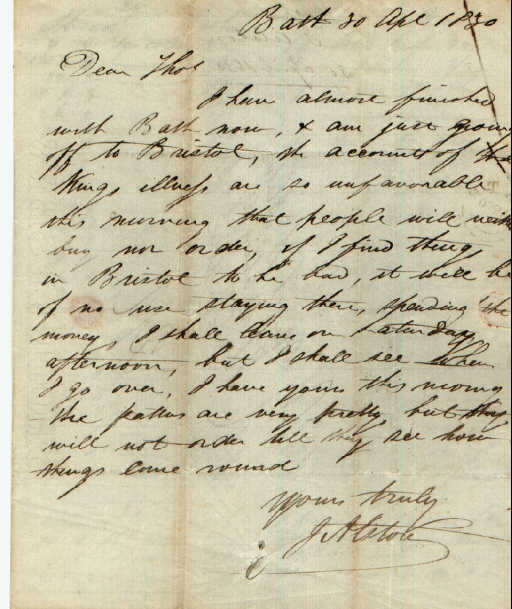 Bath 30 Apl 1830
Dear Thos
I have almost finished
with Bath now, & am just going
off to Bristol, the accounts of the
Kings illness are so unfavorable
this morning that people will neither
buy nor order, if I find things
in Bristol to be bad, it will be
of no use staying there, spending the
money, I shall leave on Saturday
afternoon, but I shall see when
I go over, I have yours this morng
the patterns are very pretty but they
will not order till they see how
things come round
yours truly